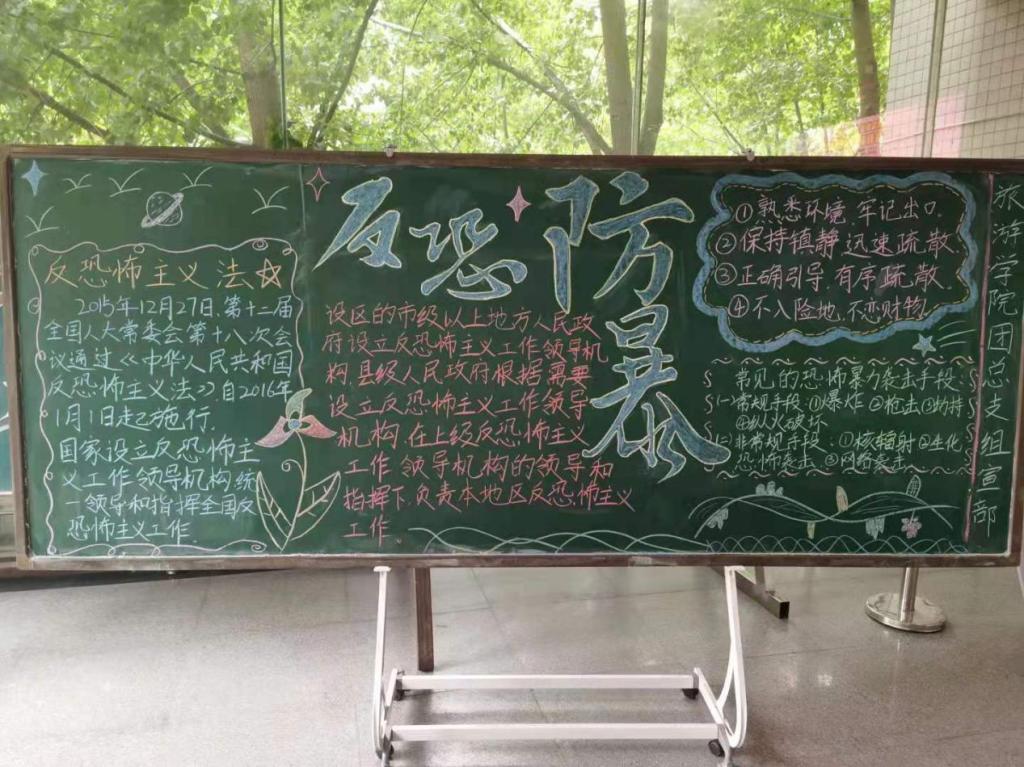 反恐防暴
反恐怖主义法
2015年12月27日,第十二届
全国人大常委会第十八次会
议通过《中华人民共和国
反恐怖主义法》自2016年
1月1日起施行.
国家设立反恐怖主
义工作领导机构,统
一领导和指挥全国反
恐怖主义工作.
设区的市级以上地方人民政
府设立反恐怖主义工作领导机
构,县级人民政府根据需要
设立反恐怖主义工作领导
机构,在上级反恐怖主义
工作领导机构的领导和
指挥下,负责本地区反恐怖主义
工作.
①熟悉环境,牢记出口.
②保持镇静,迅速疏散
③正确引导,有序疏散.
④不入险地,不恋财物
常见的恐怖暴力袭击手段:
(一)常规手段:①爆炸②枪击③劫持
④纵火破坏
(二)非常规手段:①核辐射②生化
恐怖袭击 ③网络袭击
旅游学院团总支组宣部